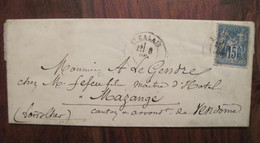 St CALAIS
15
Monsieur A. Le Gendre
chez Mr Lefeuille maître d'Hotel
Mazangé
(Loir & Cher) canton & arront. de Vendôme